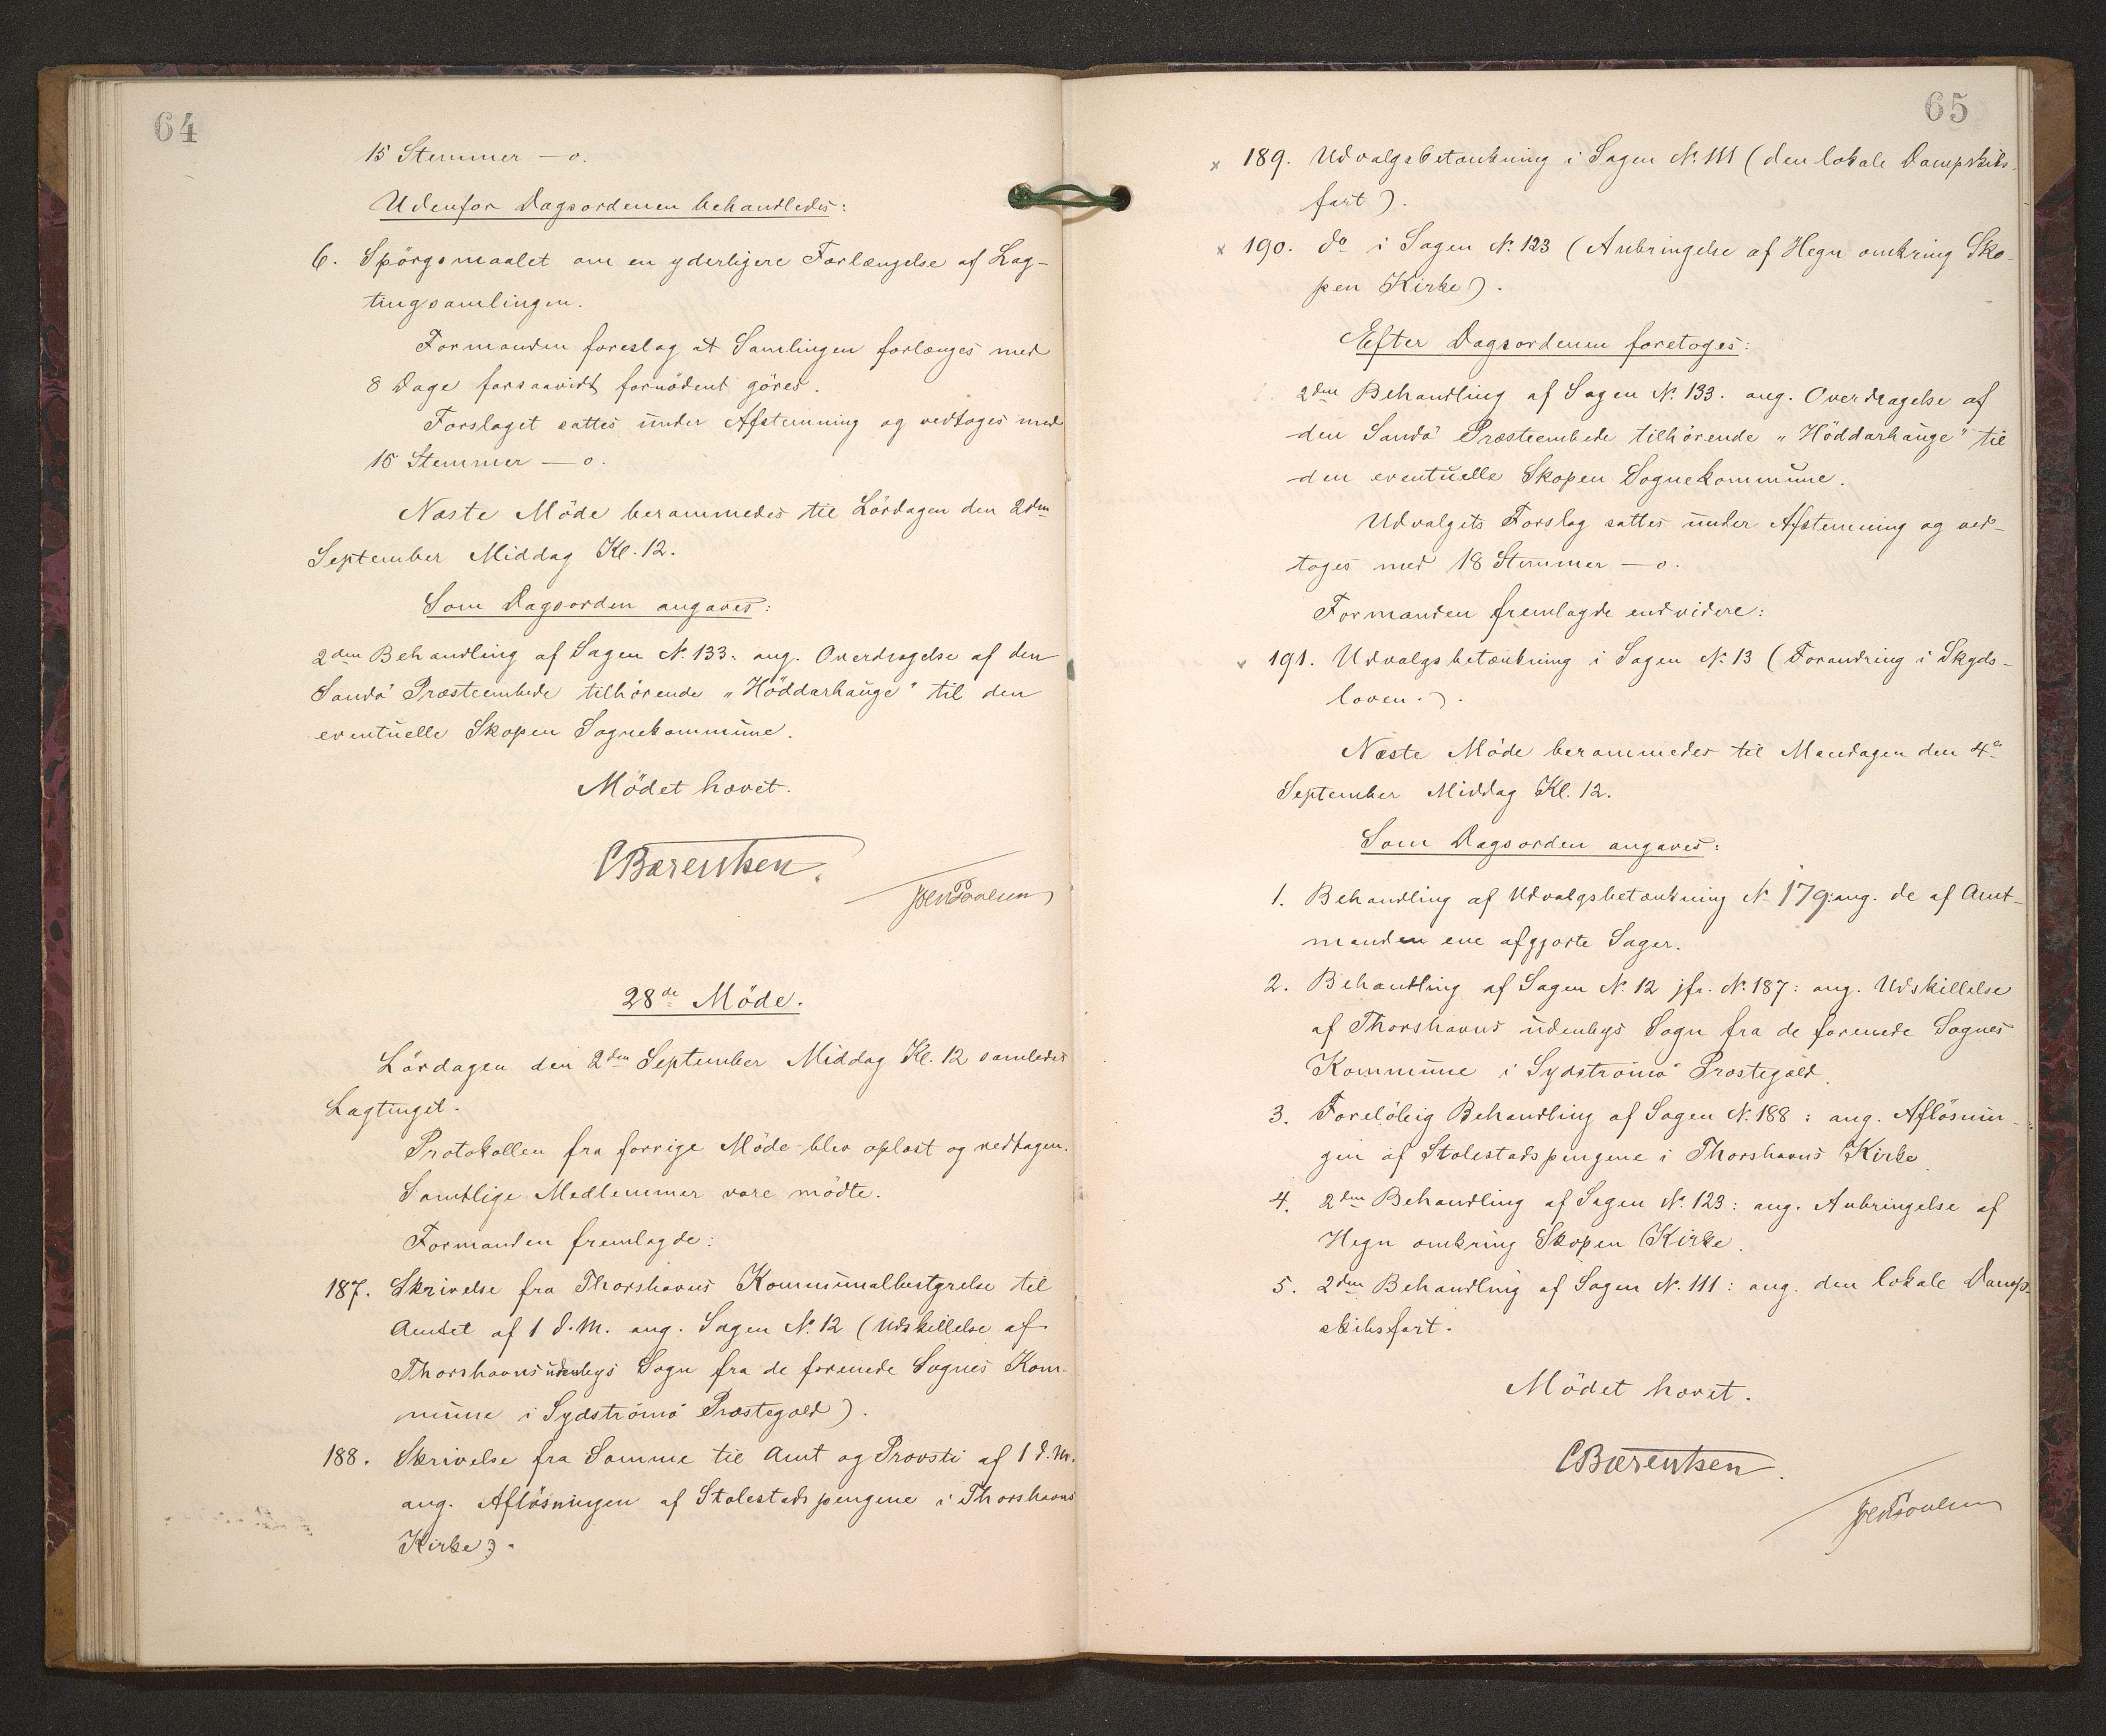 64
15 Stemmer — 0.
Udenfor Dagsordenen behandledes:
6. Spörgsmaalet om en yderligere Forlængelse af Lag-
tingsamlingen.
Formanden foreslog at Samlingen forlænges med
8 Dage forsaavidt fornödent göres.
Forslaget sattes under Afstemning og vedtoges med
15 Stemmer — 0.
Næste Möde berammedes til Lördagen den 2den
September Middag Kl. 12.
Som Dagsorden angaves:
2den Behandling af Sagen No 133: ang. Overdragelse af den
Sandö Præsteembede tilhörende „Höddarhauge" til den
eventuelle Skopen Sognekommune.
Mödet hævet.
CBærentsen.
JoenPoulsen
28de Möde.
Lördagen den 2den September Middag Kl. 12 samledes
Lagtinget.
Protokollen fra forrige Möde blev oplæst og vedtagen.
Samtlige Medlemmer vare mödte.
Formanden fremlagde:
187. Skrivelse fra Thorshavns Kommunalbestyrelse til
Amtet af 1 d. M. ang. Sagen No 12 (Udskillelse af
Thorshavns udenbys Sogn fra de forenede Sognes Kom-
mune i Sydströmö Præstegæld).
188. Skrivelse fra Samme til Amt og Provsti af 1 d. M.
ang. Aflösningen af Stolestadspengene i Thorshavns
Kirke).
65
x 189. Udvalgsbetænkning i Sagen No 111 (den lokale Dampskibs-
fart).
x 190. do i Sagen No 123 (Anbringelse af Hegn omkring Sko-
pen Kirke).
Efter Dagsordenen foretoges:
2den Behandling af Sagen No 133. ang. Overdragelse af
den Sandö Præsteembede tilhörende „Höddarhauge" til
den eventuelle Skopen Sognekommune.
Udvalgets Forslag sattes under Afstemning og ved-
toges med 18 Stemmer — 0.
Formanden fremlagde endvidere:
191. Udvalgsbetænkning i Sagen No 13 (Forandring i Skyds-
loven.).
Næste Möde berammedes til Mandagen den 4de
September Middag Kl. 12.
Som Dagsorden angaves:
1. Behandling af Udvalgsbetænkning No 179: ang. de af Amt-
manden ene afgjorte Sager.
2. Behandling af Sagen No 12 jfr. No 187: ang. Udskillelse
af Thorshavns udenbys Sogn fra de forenede Sognes
Kommune i Sydströmö Præstegæld.
3. Forelöbig Behandling af Sagen No 188: ang. Aflösnin-
gen af Stolestadspengene i Thorshavns Kirke.
4. 2den Behandling af Sagen No 123: ang. Anbringelse af
Hegn omkring Skopen Kirke.
5. 2den Behandling af Sagen No 111: ang. den lokale Damp-
skibsfart.
Mödet hævet.
CBærentsen.
JoenPoulsen